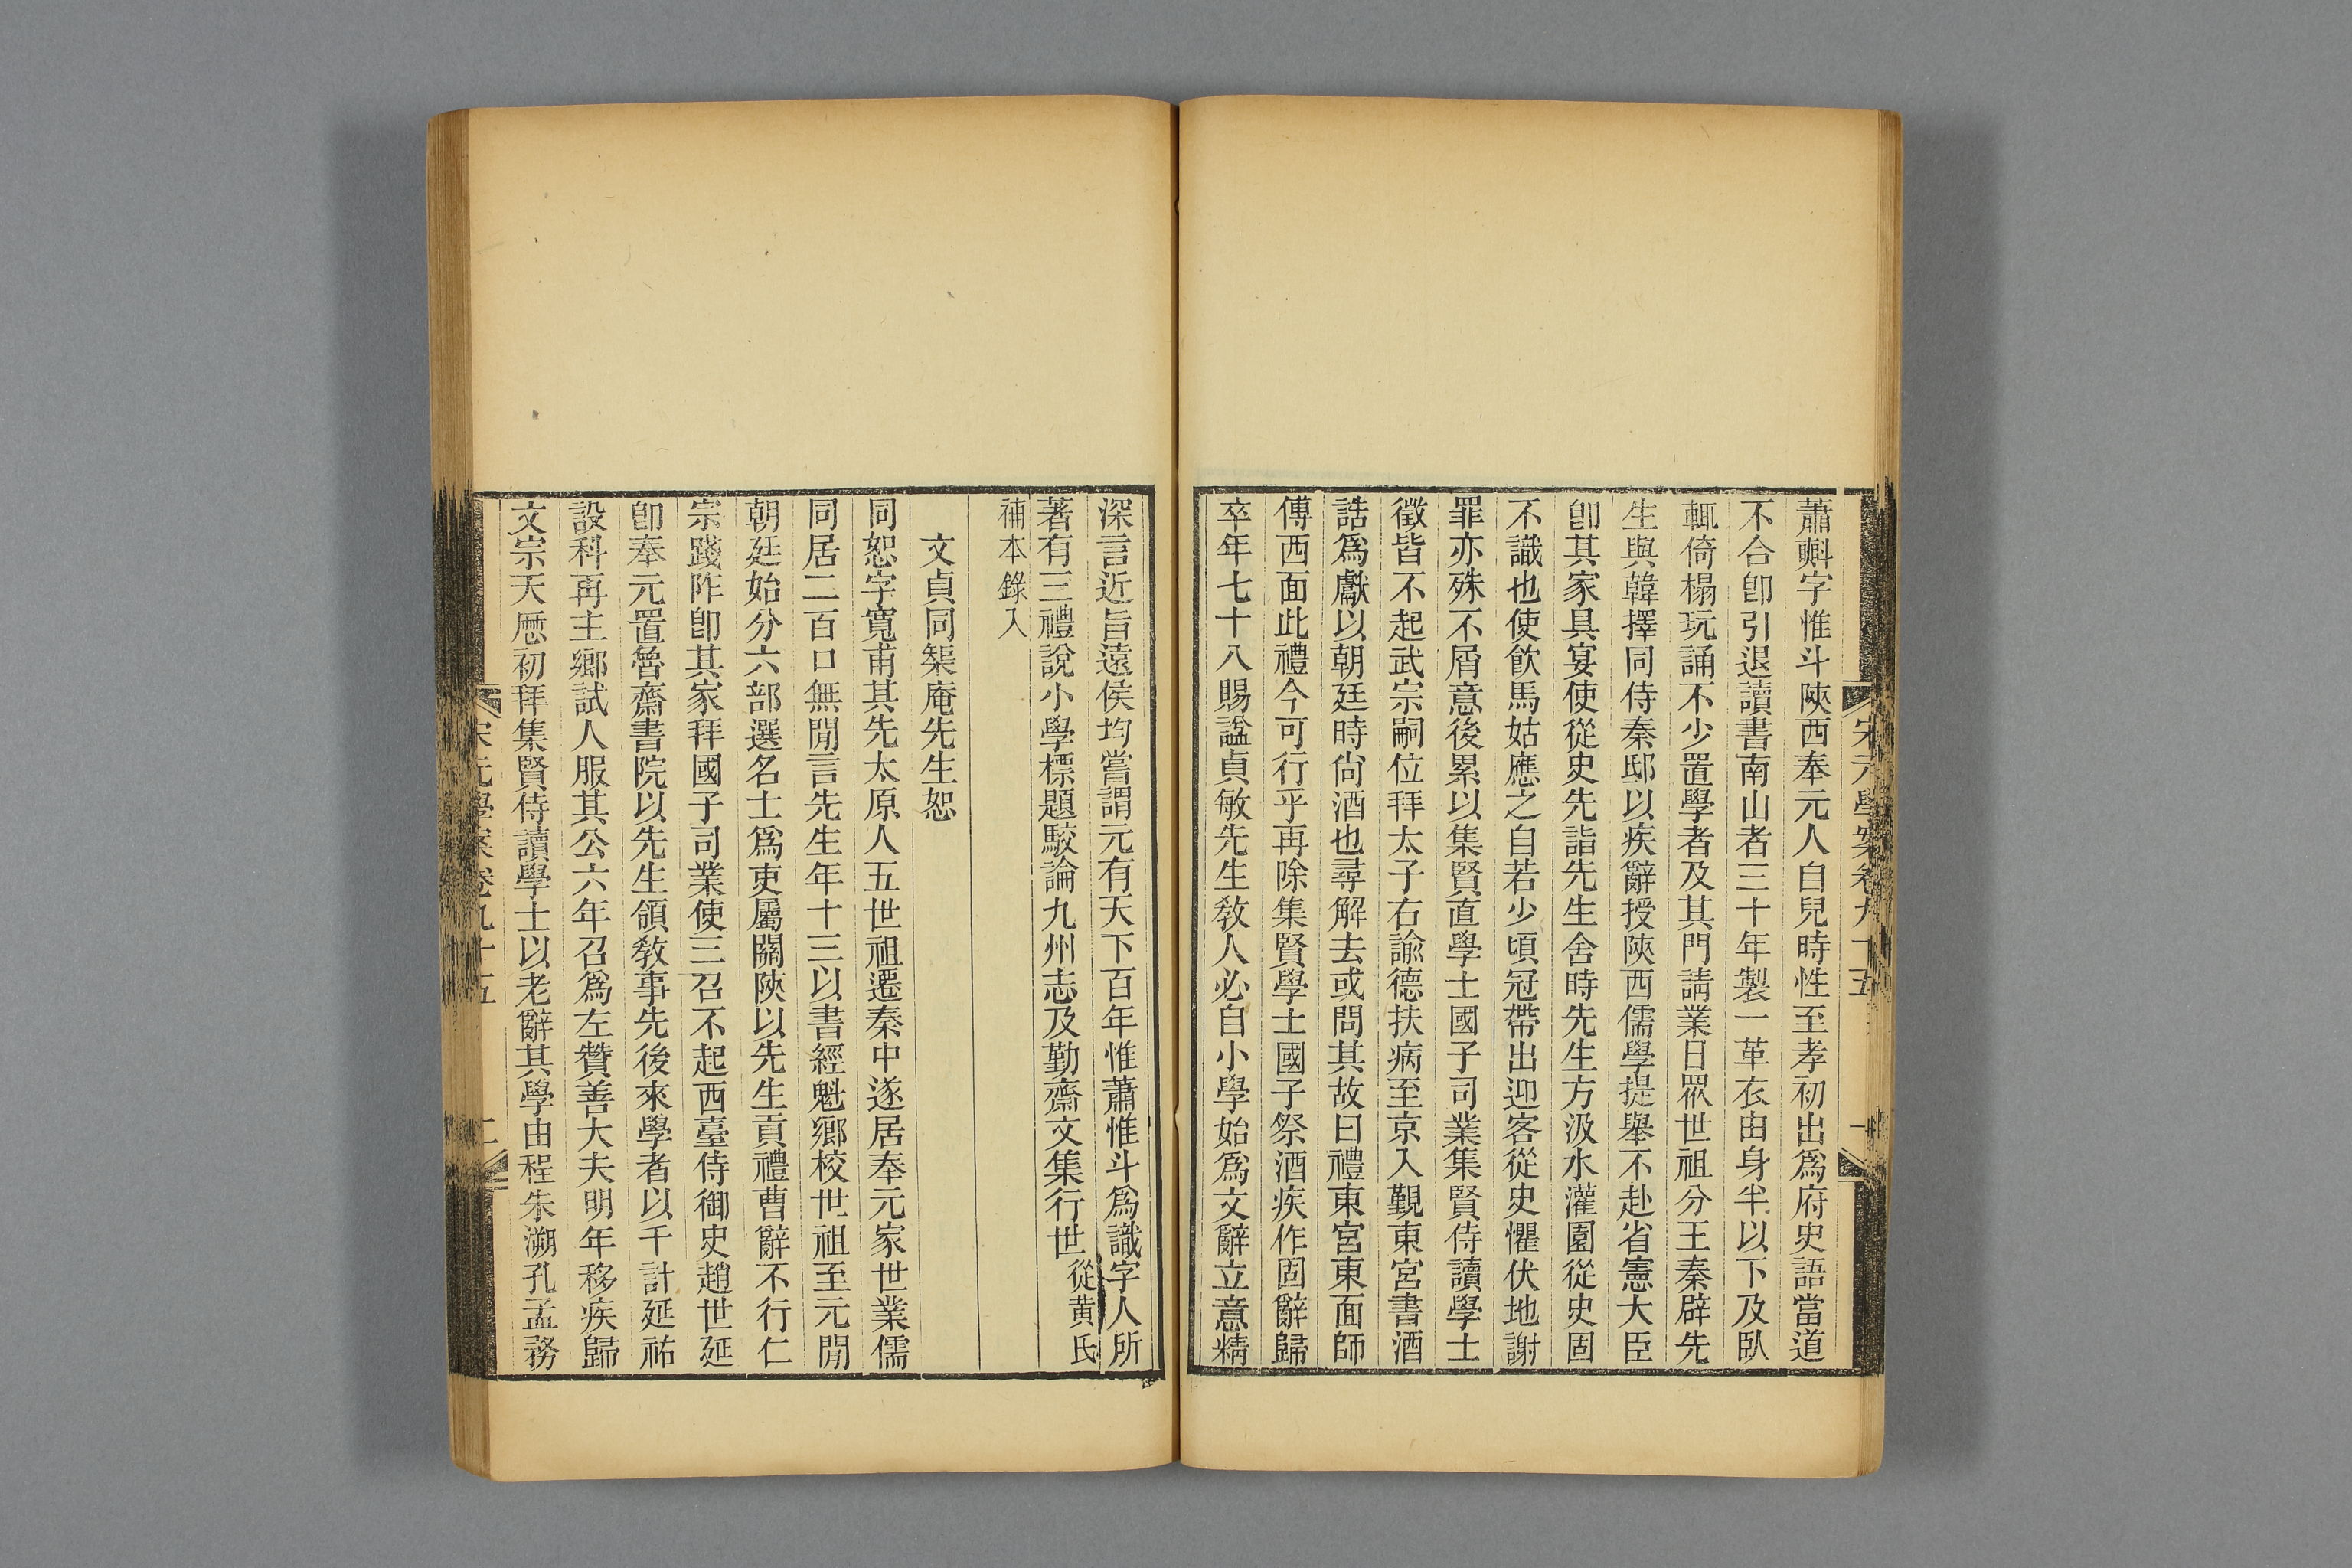 宋元學案卷九十五
蕭𣂏字惟斗陝西奉元人自兒時性至孝初出爲府史語當道
不合卽引退讀書南山者三十年製一革衣由身半以下及臥
輒倚榻玩誦不少置學者及其門請業日眾世祖分王秦辟先
生與韓擇同侍秦邸以疾辭授陝西儒學提舉不赴省憲大臣
卽其家具宴使從史先詣先生舍時先生方汲水灌園從史固
不識也使飮馬姑應之自若少頃冠帶出迎客從史懼伏地謝
罪亦殊不屑意後累以集賢直學士國子司業集賢侍讀學士
徵皆不起武宗嗣位拜太子右諭德扶病至京入覲東宮書酒
誥爲獻以朝廷時尙酒也尋解去或問其故曰禮東宮東面師
傅西面此禮今可行乎再除集賢學士國子祭酒疾作固辭歸
卒年七十八賜諡貞敏先生敎人必自小學始爲文辭立意精
深言近旨遠侯均嘗謂元有天下百年惟蕭惟斗爲識字人所
著有三禮說小學標題駮論九州志及勤齋文集行世從黃氏
補本錄入
文貞同榘庵先生恕
同恕字寬甫其先太原人五世祖遷秦中遂居奉元家世業儒
同居二百口無閒言先生年十三以書經魁鄉校世祖至元閒
朝廷始分六部選名士爲吏屬關陝以先生貢禮曹辭不行仁
宗踐阼卽其家拜國子司業使三召不起西臺侍御史趙世延
卽奉元置魯齋書院以先生領敎事先後來學者以千計延祐
設科再主鄉試人服其公六年召爲左贊善大夫明年移疾歸
文宗天曆初拜集賢侍讀學士以老辭其學由程朱溯孔孟務
宋元學案卷九十五
二